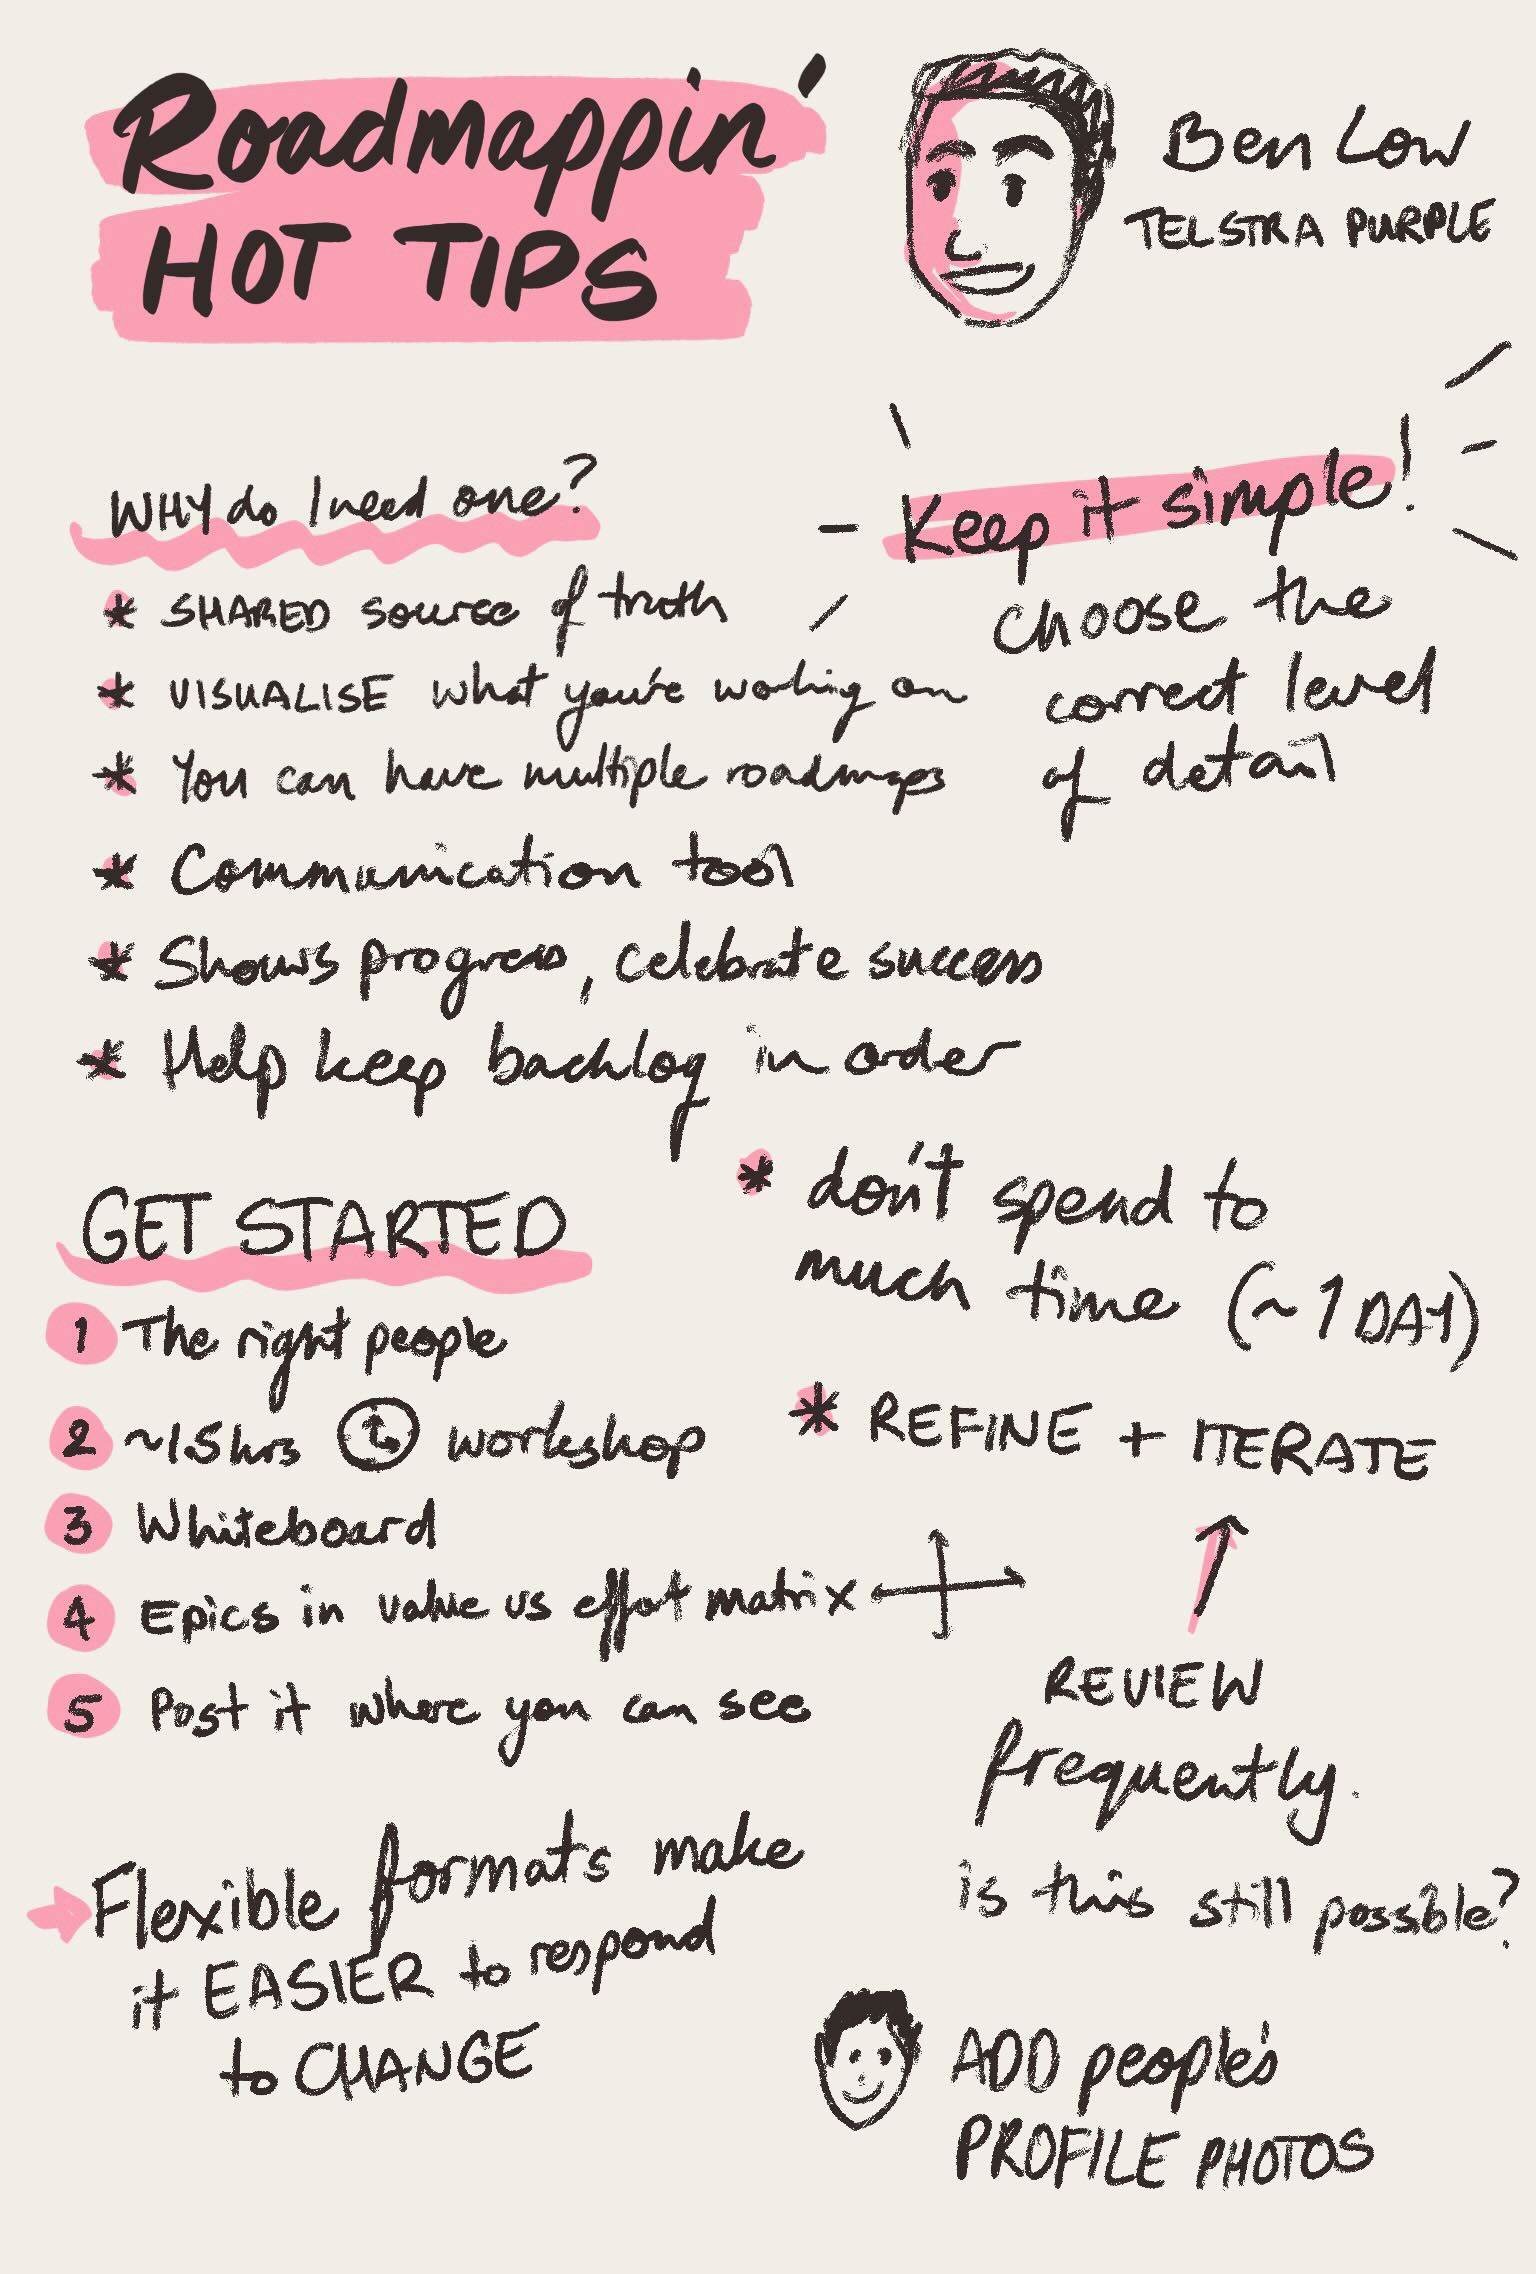 Roadmappin'
HOT TIPS
Ben Low
TELSTRA PURPLE
WHY do I need one?
* SHARED source of truth
* VISUALISE what you're working on
* You can have multiple roadmaps
* Communication tool
* Shows progress, celebrate success
* Help keep backlog in order
Keep it simple!
choose the
correct level
of detail
GET STARTED
1 The right people
2 ~1.5hrs workshop
3 Whiteboard
4 Epics in value vs effort matrix
5 Post it where you can see
* don't spend to
much time (~1 DAY)
* REFINE + ITERATE
REVIEW
frequently.
is this still possible?
Flexible formats make
it EASIER to respond
to CHANGE
ADD people's
PROFILE PHOTOS